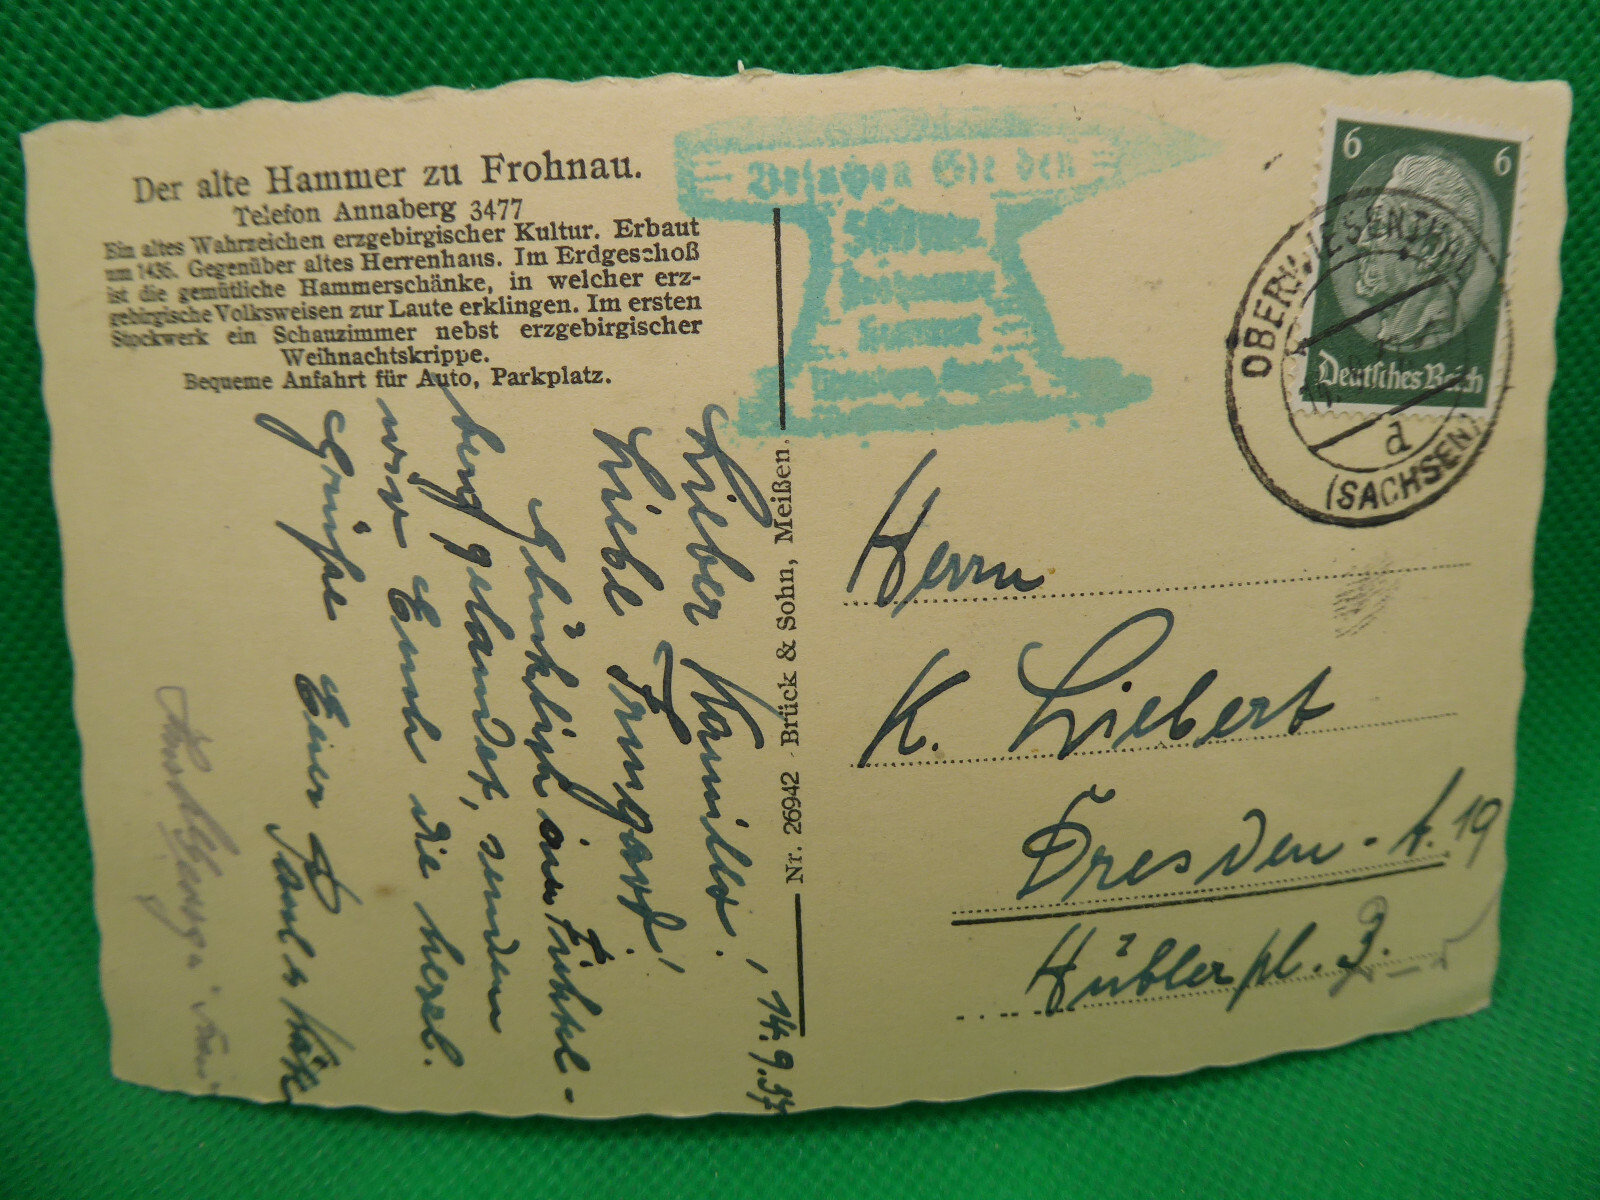 Der alte Hammer zu Frohnau.
Telefon Annaberg 3477
Ein altes Wahrzeichen erzgebirgischer Kultur. Erbaut
um 1436. Gegenüber altes Herrenhaus. Im Erdgeschoß
ist die gemütliche Hammerschänke, in welcher erz-
gebirgische Volksweisen zur Laute erklingen. Im ersten
Stockwerk ein Schauzimmer nebst erzgebirgischer
Weihnachtskrippe.
Bequeme Anfahrt für Auto, Parkplatz.
Besuchen Sie den
Hammer
6 6
Deutsches Reich
OBERWIESENTHAL
d
(SACHSEN)
Nr. 26942 Brück & Sohn, Meißen.
14.9.37
Lieber Kamillo!
Liebe Irmgard!
Glücklich im Fichtel-
berg gelandet, senden
wir Euch die herzl.
Grüße Eure
Herrn
K. Liebert
Dresden-A. 19
Hüblerpl. 3.